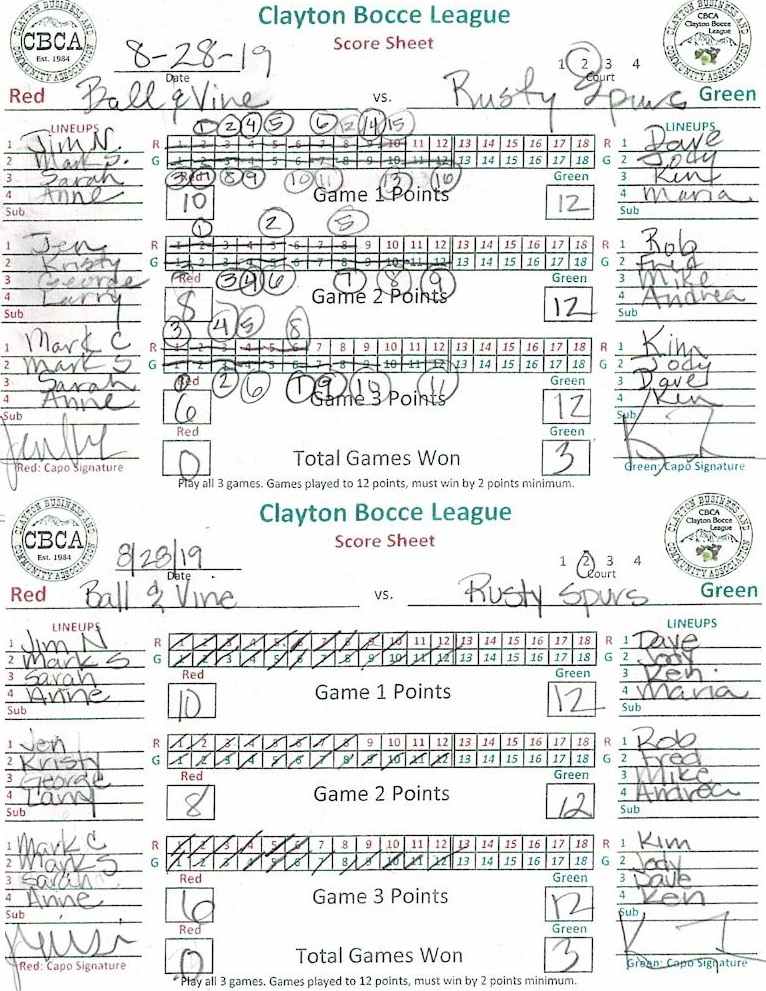 Clayton Bocce League
Score Sheet
CLAYTON BUSINESS AND COMMUNITY ASSOCIATION
CBCA
Est. 1984
CBCA
Clayton Bocce
League
8-28-19
Date
1 2 3 4
Court
Red Ball & Vine vs. Rusty Spurs Green
LINEUPS
1 Jim N.
2 Mark S.
3 Sarah
4 Anne
Sub
R 1 2 3 4 5 6 7 8 9 10 11 12 13 14 15 16 17 18 R
G 1 2 3 4 5 6 7 8 9 10 11 12 13 14 15 16 17 18 G
Red
10
Game 1 Points
Green
12
LINEUPS
1 Dave
2 Jody
3 Ken
4 Maria
Sub
1 Jen
2 Kristy
3 George
4 Larry
Sub
R 1 2 3 4 5 6 7 8 9 10 11 12 13 14 15 16 17 18 R
G 1 2 3 4 5 6 7 8 9 10 11 12 13 14 15 16 17 18 G
Red
8
Game 2 Points
Green
12
1 Rob
2 Fred
3 Mike
4 Andrea
Sub
1 Mark C
2 Mark S
3 Sarah
4 Anne
Sub
R 1 2 3 4 5 6 7 8 9 10 11 12 13 14 15 16 17 18 R
G 1 2 3 4 5 6 7 8 9 10 11 12 13 14 15 16 17 18 G
Red
6
Game 3 Points
Green
12
1 Kim
2 Jody
3 Dave
4 Ken
Sub
Red
0
Total Games Won
Green
3
Red: Capo Signature
Green: Capo Signature
Play all 3 games. Games played to 12 points, must win by 2 points minimum.
Clayton Bocce League
Score Sheet
CLAYTON BUSINESS AND COMMUNITY ASSOCIATION
CBCA
Est. 1984
CBCA
Clayton Bocce
League
8/28/19
Date
1 2 3 4
Court
Red Ball & Vine vs. Rusty Spurs Green
LINEUPS
1 Jim N
2 Mark S
3 Sarah
4 Anne
Sub
R 1 2 3 4 5 6 7 8 9 10 11 12 13 14 15 16 17 18 R
G 1 2 3 4 5 6 7 8 9 10 11 12 13 14 15 16 17 18 G
Red
10
Game 1 Points
Green
12
LINEUPS
1 Dave
2 Jody
3 Ken
4 Maria
Sub
1 Jen
2 Kristy
3 George
4 Larry
Sub
R 1 2 3 4 5 6 7 8 9 10 11 12 13 14 15 16 17 18 R
G 1 2 3 4 5 6 7 8 9 10 11 12 13 14 15 16 17 18 G
Red
8
Game 2 Points
Green
12
1 Rob
2 Fred
3 Mike
4 Andrea
Sub
1 Mark C
2 Mark S
3 Sarah
4 Anne
Sub
R 1 2 3 4 5 6 7 8 9 10 11 12 13 14 15 16 17 18 R
G 1 2 3 4 5 6 7 8 9 10 11 12 13 14 15 16 17 18 G
Red
6
Game 3 Points
Green
12
1 Kim
2 Jody
3 Dave
4 Ken
Sub
Red
0
Total Games Won
Green
3
Red: Capo Signature
Green: Capo Signature
Play all 3 games. Games played to 12 points, must win by 2 points minimum.